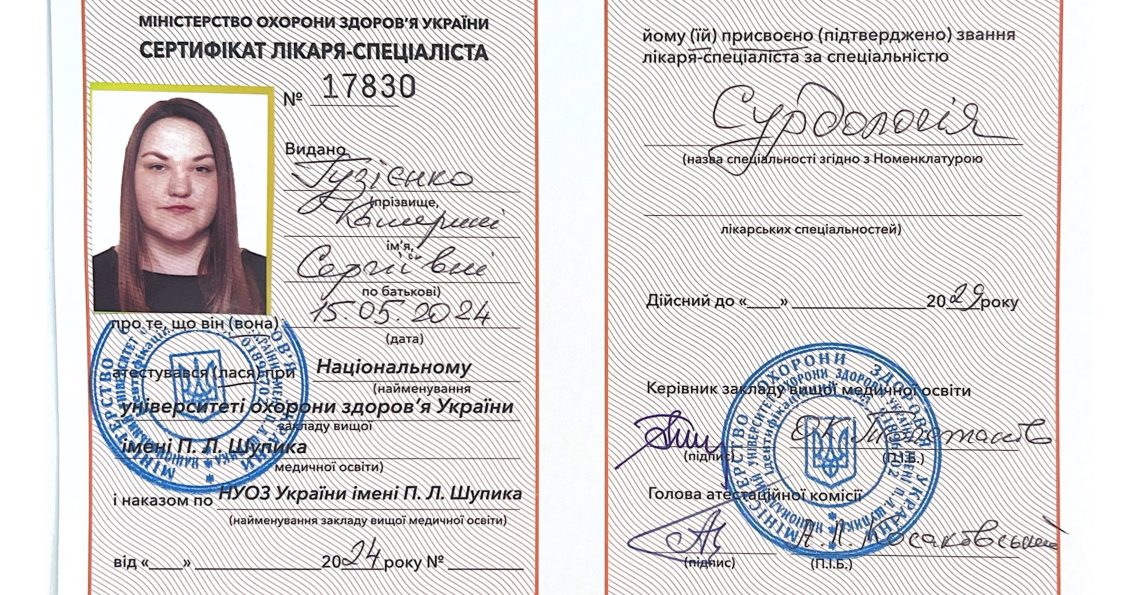 МІНІСТЕРСТВО ОХОРОНИ ЗДОРОВ'Я УКРАЇНИ
СЕРТИФІКАТ ЛІКАРЯ-СПЕЦІАЛІСТА
№ 17830
Видано Гузієнко
(прізвище,
Катерині
ім'я,
Сергіївні
по батькові)
15.05.2024
(дата)
про те, що він (вона)
атестувався (лася) при Національному
(найменування
університеті охорони здоров'я України
закладу вищої
імені П. Л. Шупика
медичної освіти)
і наказом по НУОЗ України імені П. Л. Шупика
(найменування закладу вищої медичної освіти)
від «___» ____________ 2024 року № ________
йому (їй) присвоєно (підтверджено) звання
лікаря-спеціаліста за спеціальністю
Сурдологія
(назва спеціальності згідно з Номенклатурою
лікарських спеціальностей)
Дійсний до «___» ____________ 2029 року
Керівник закладу вищої медичної освіти
(підпис) (П.І.Б.)
Голова атестаційної комісії
А.Л. Косаковський
(підпис) (П.І.Б.)